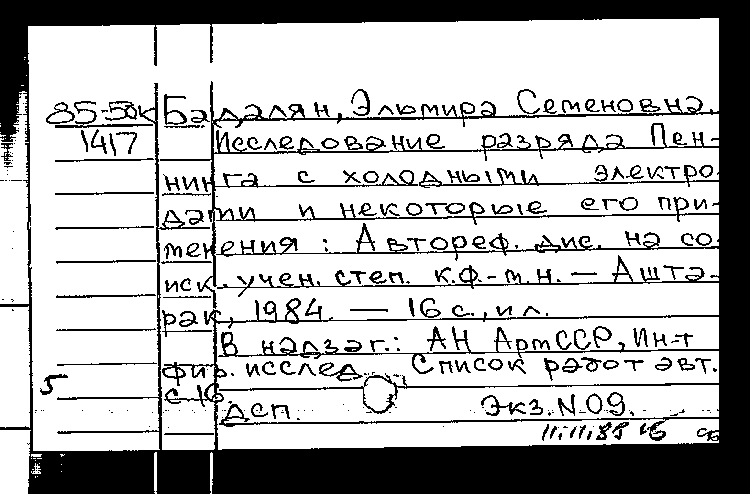 85-50к Бадалян, Эльмира Семеновна.
1417 Исследование разряда Пен-
нинга с холодными электро
дами и некоторые его при-
менения : Автореф. дис. на со-
иск. учен. степ. к.ф.-м.н. — Ашта-
рак, 1984. — 16 с., ил.
В надзаг.: АН АрмССР, Ин-т
физ. исслед. Список работ авт.
5 с 16.
ДСП. Экз. N 09.